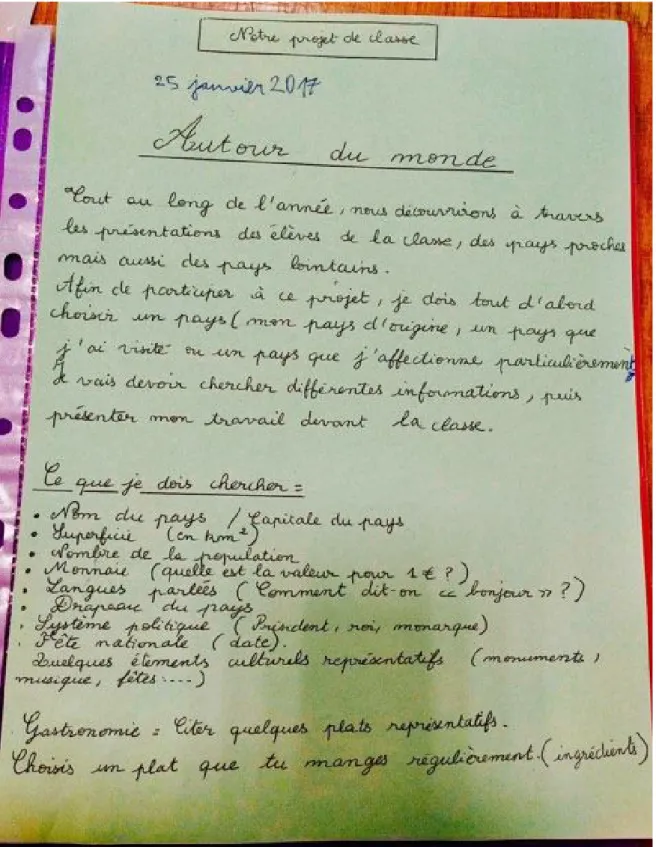 Notre projet de classe
25 janvier 2017
Autour du monde
Tout au long de l'année, nous découvrirons à travers
les présentations des élèves de la classe, des pays proches
mais aussi des pays lointains.
Afin de participer à ce projet, je dois tout d'abord
choisir un pays (mon pays d'origine, un pays que
j'ai visité ou un pays que j'affectionne particulièrement)
Je vais devoir chercher différentes informations, puis
présenter mon travail devant la classe.
Ce que je dois chercher =
• Nom du pays / Capitale du pays
• Superficie (en km²)
• Nombre de la population
• Monnaie (quelle est la valeur pour 1 € ?)
• Langues parlées (Comment dit-on « bonjour » ?)
• Drapeau du pays
• Système politique (Président, roi, monarque)
• Fête nationale (date).
Quelques éléments culturels représentatifs (monuments,
musique, fêtes ....)
Gastronomie = Citer quelques plats représentatifs.
Choisis un plat que tu manges régulièrement. (ingrédients)